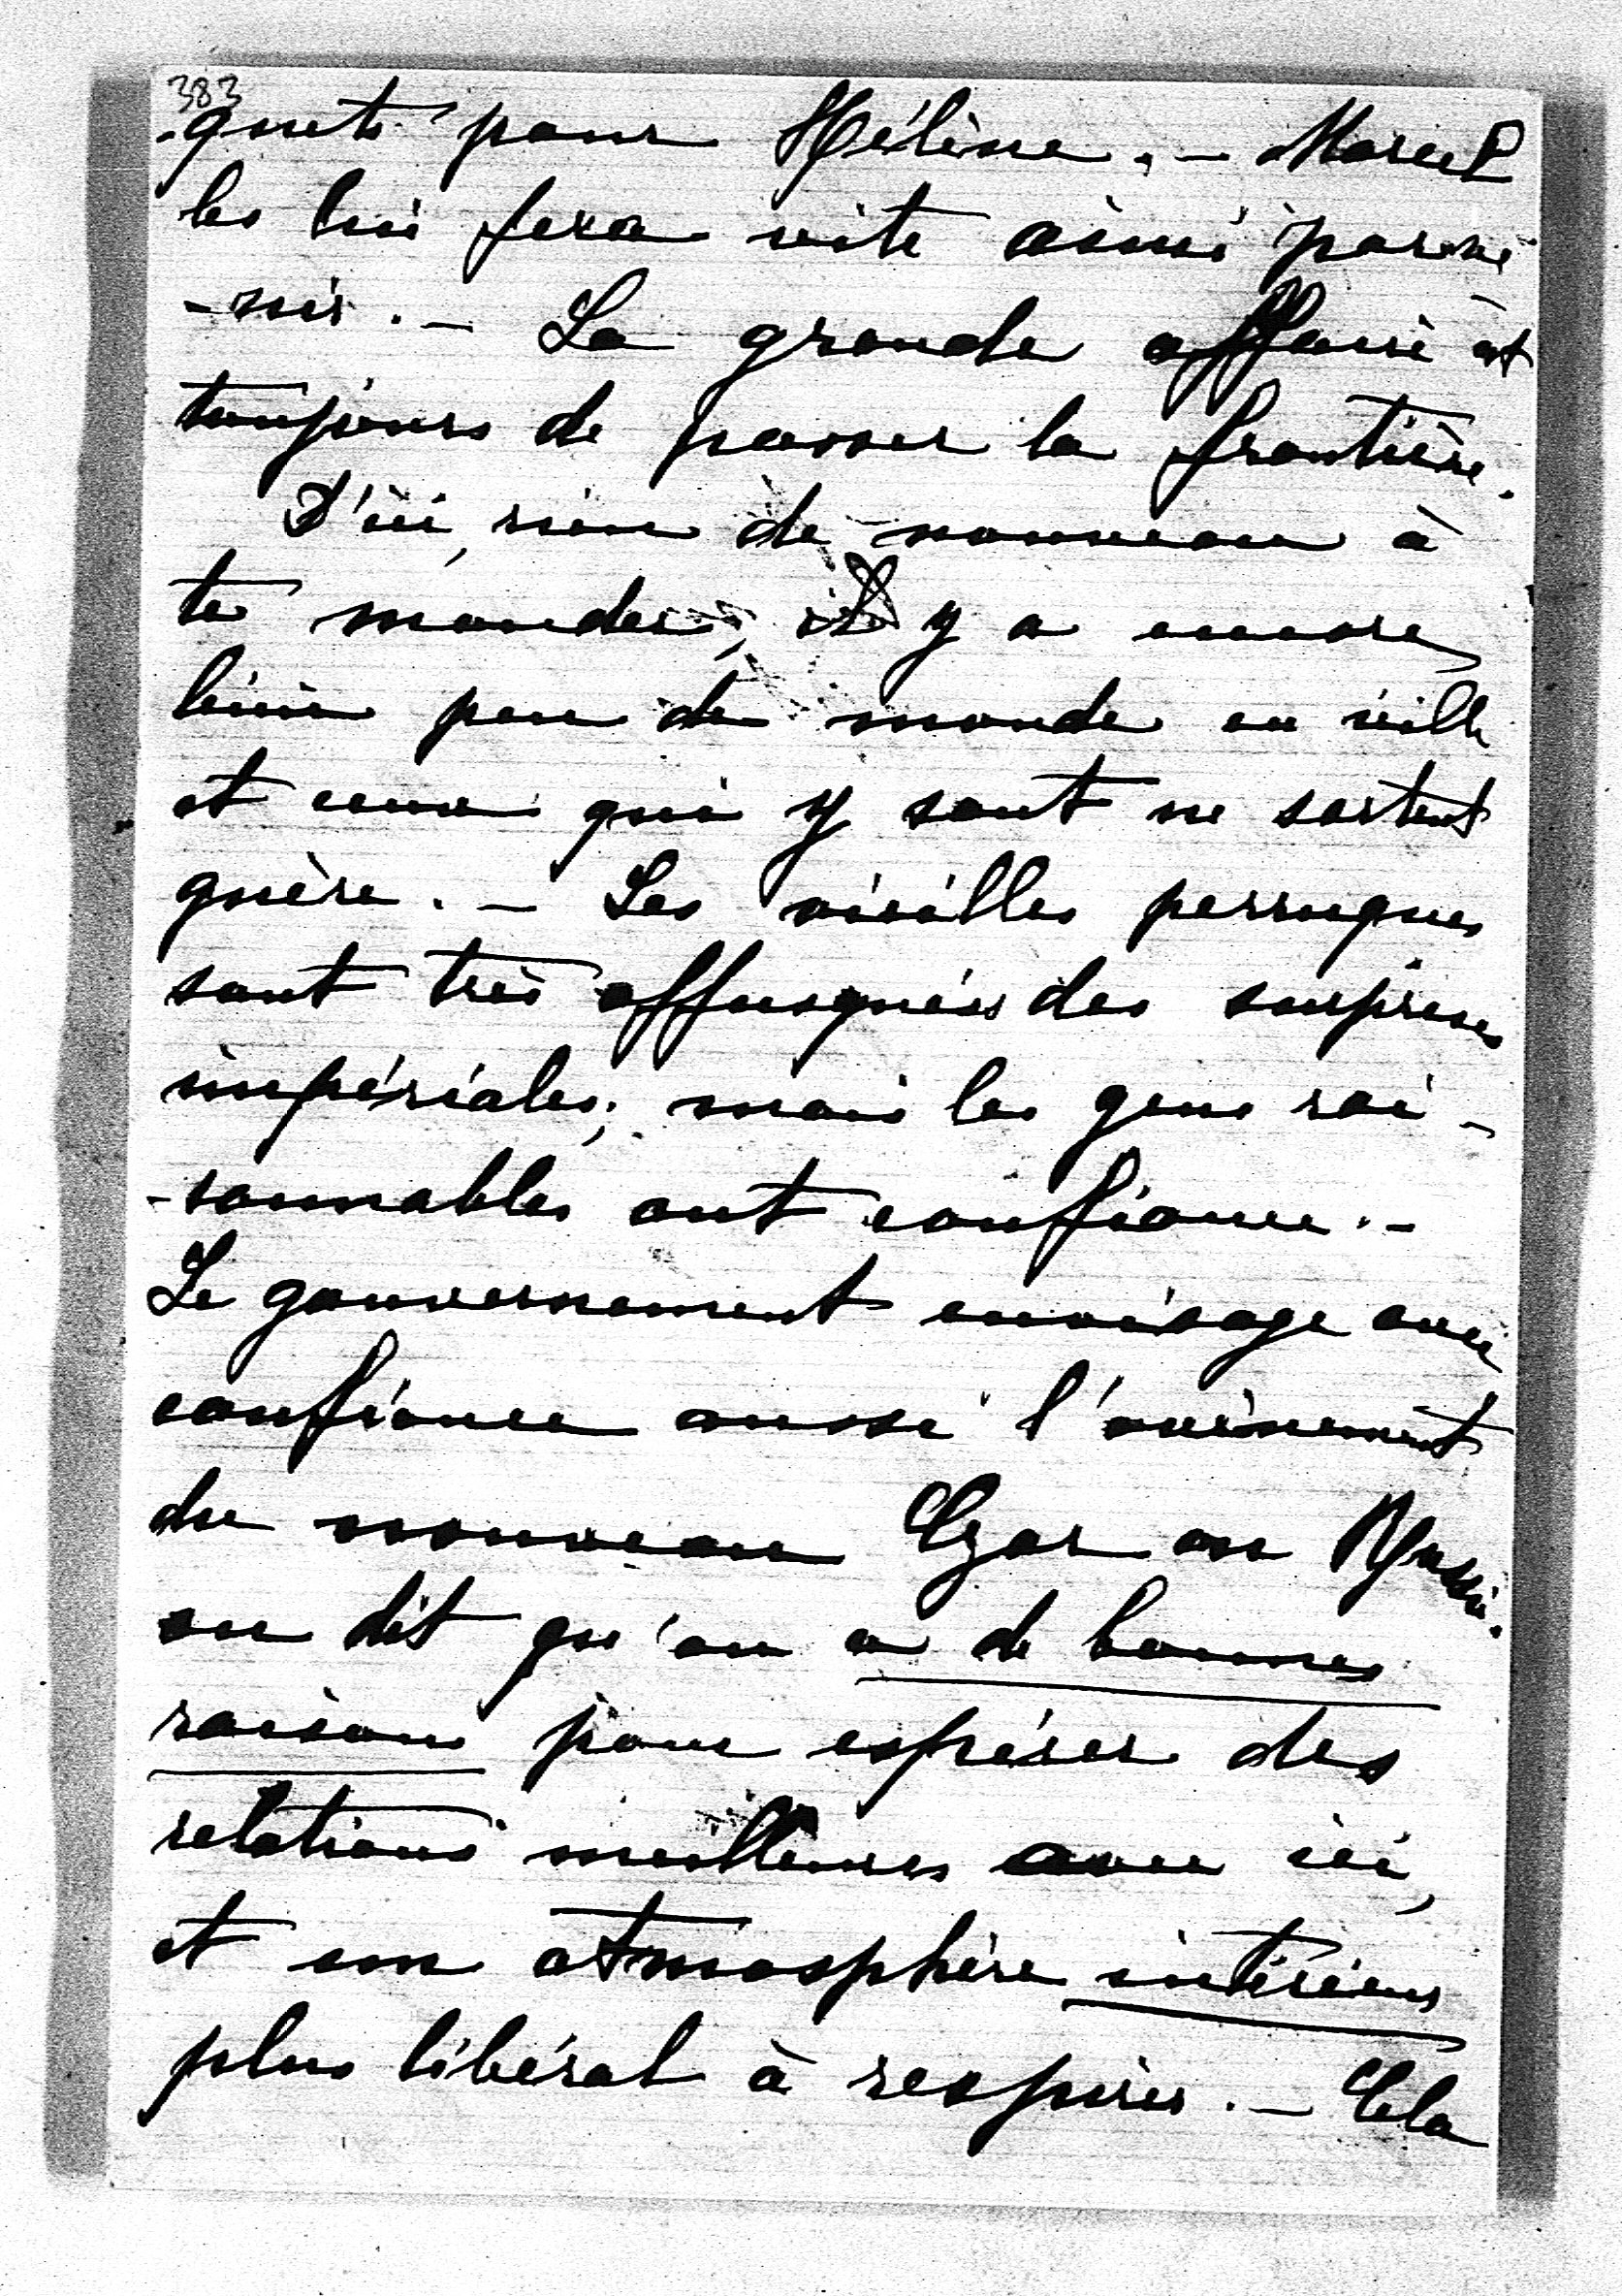 383
-quets pour Hélène. — Marcel
les lui fera vite ainsi parve
-nir. — La grande affaire est
toujours de passer la frontière.
D'ici, rien de nouveau à
te mander; il y a encore
bien peu de monde en ville
et ceux qui y sont ne sortent
guère. — Les vieilles perruques
sont très offusquées des surprises
impériales; mais les gens rai-
-sonnables ont confiance. —
Le gouvernement envisage avec
confiance aussi l'avènement
du nouveau Czar en Russie.
on dit qu'on a de bonnes
raisons pour espérer des
relations meilleures avec ici,
et une atmosphère intérieure
plus libéral à respirer. — Cela